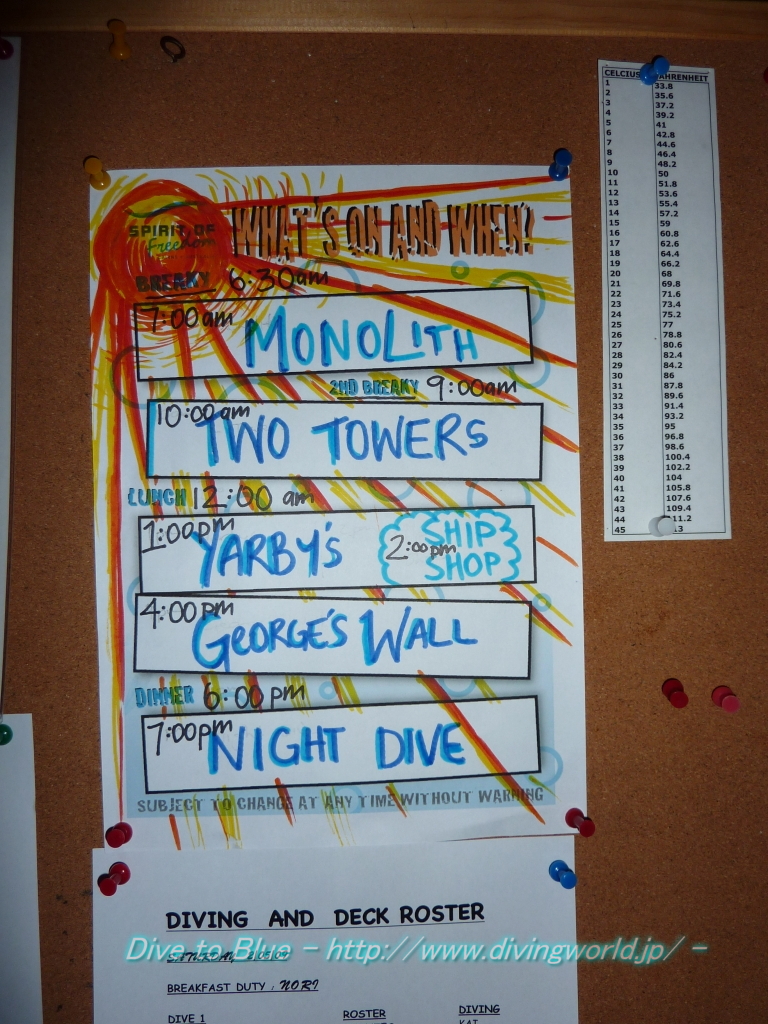 SPIRIT OF
Freedom
WHAT'S ON AND WHEN?
BREAKY 6:30am
7:00am
MONOLITH
2ND BREAKY 9:00am
10:00am
TWO TOWERS
LUNCH 12:00 am
1:00pm
YARBY'S
2:00pm
SHIP
SHOP
4:00pm
GEORGE'S WALL
DINNER 6:00 pm
7:00pm
NIGHT DIVE
SUBJECT TO CHANGE AT ANY TIME WITHOUT WARNING
CELCIUS
1 33.8
2 35.6
3 37.2
4 39.2
5 41
6 42.8
7 44.6
8 46.4
9 48.2
10 50
11 51.8
12 53.6
13 55.4
14 57.2
15 59
16 60.8
17 62.6
18 64.4
19 66.2
20 68
21 69.8
22 71.6
23 73.4
24 75.2
25 77
26 78.8
27 80.6
28 82.4
29 84.2
30 86
31 87.8
32 89.6
33 91.4
34 93.2
35 95
36 96.8
37 98.6
38 100.4
39 102.2
40 104
41 105.8
42 107.6
43 109.4
44
45
DIVING AND DECK ROSTER
Dive to Blue - http://www.divingworld.jp/ -
SATURDAY
BREAKFAST DUTY : NORI
DIVE 1
ROSTER
DIVING
KAT